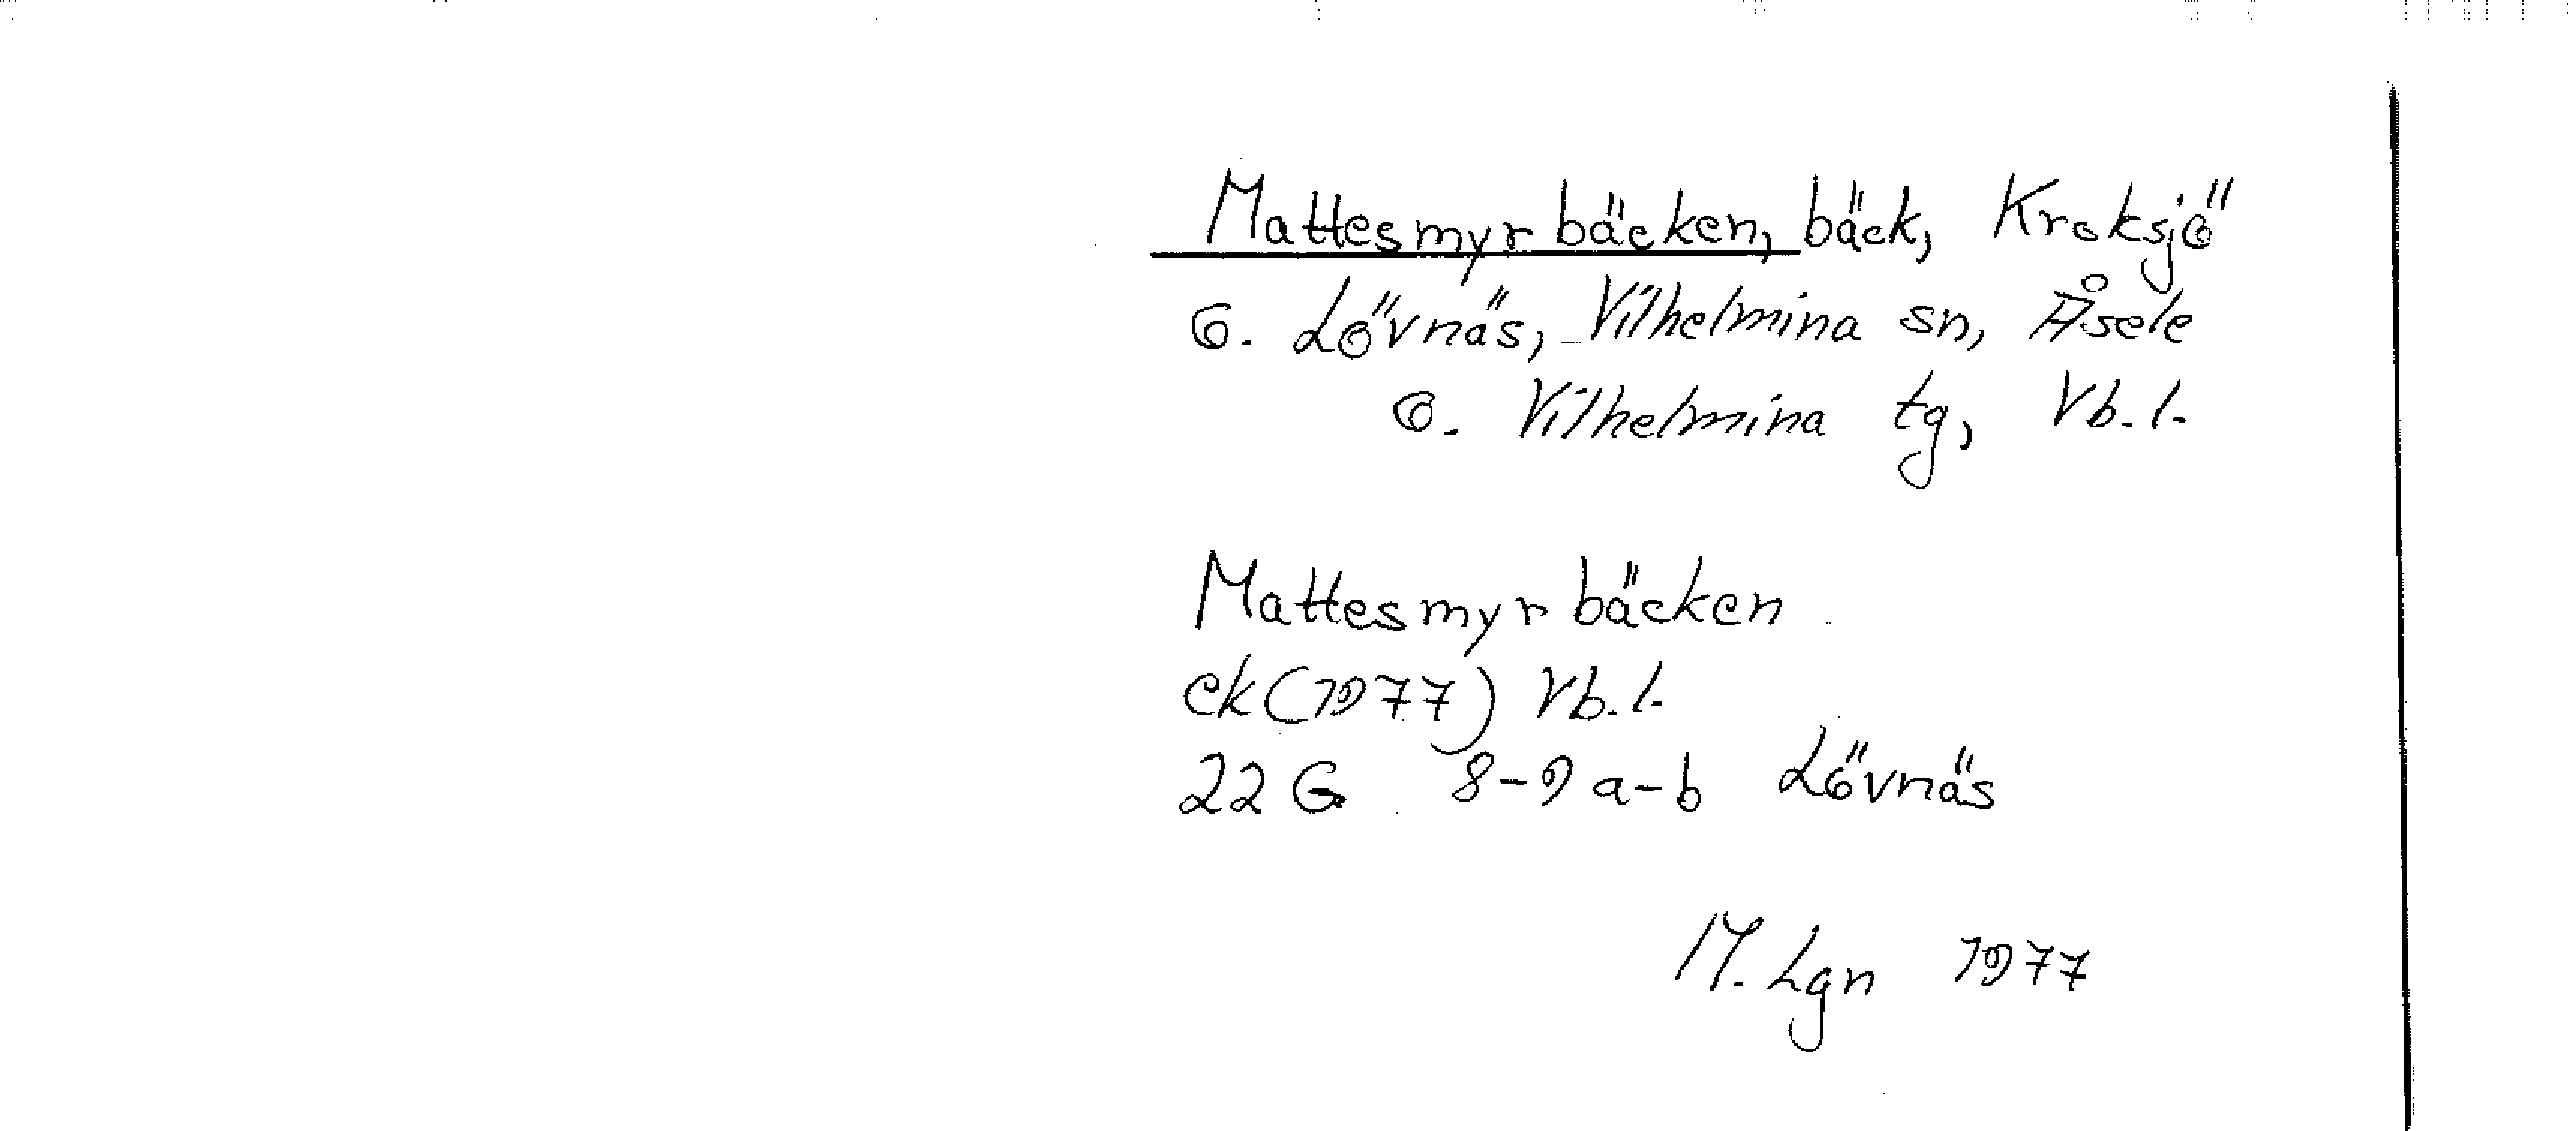 Mattesmyrbäcken, bäck, Kroksjö
o. Lövnäs, Vilhelmina sn, Åsele
o. Vilhelmina tg, Vb. l.
Mattesmyrbäcken
ek (1977) Vb. l.
22 G 8-9 a-b Lövnäs
M. Lgn 1977